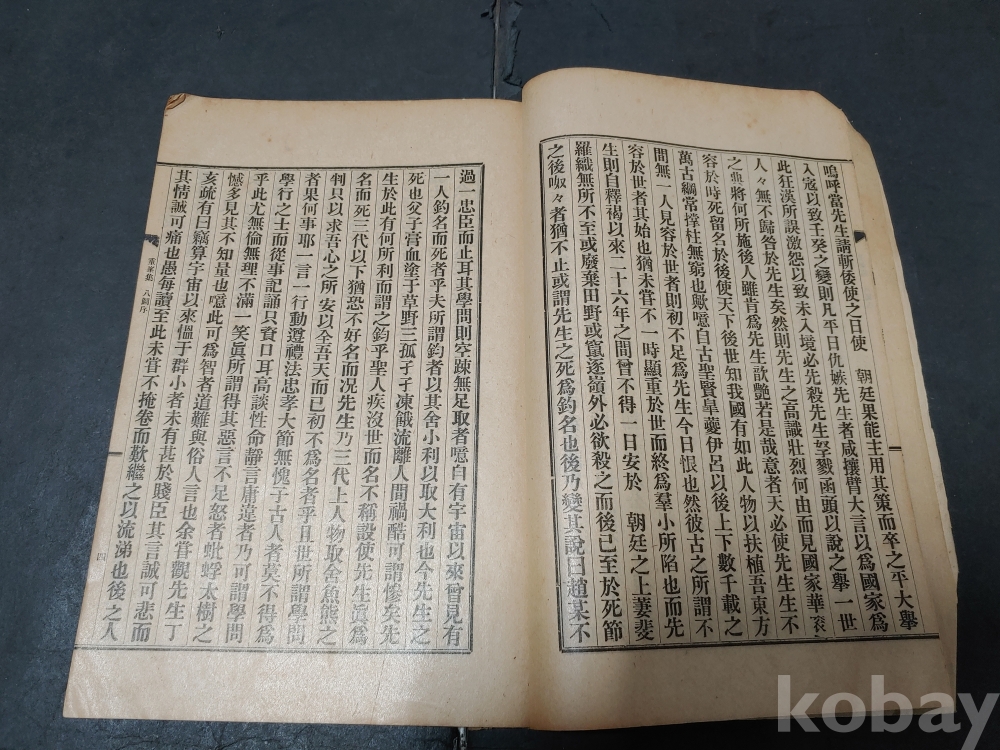 嗚呼當先生請斬倭使之日使　朝廷果能主用其策而卒之平大擧
入寇以致壬癸之變則凡平日仇嫉先生者咸攘臂大言以爲國家爲
此狂漢所誤激怨以致未入境必先殺先生孥戮函頭以說之擧一世
人々無不歸咎於先生矣然則先生之高識壯烈何由而見國家華袞
之典將何所施後人雖肯爲先生歆艶若是哉意者天必使先生生不
容於時死留名於後使天下後世知我國有如此人物以扶植吾東方
萬古綱常撑柱無窮也歟噫自古聖賢皐夔伊呂以後上下數千載之
間無一人見容於世者則初不足爲先生今日恨也然彼古之所謂不
容於世者其始也猶未甞不一時顯重於世而終爲羣小所陷也而先
生則自釋褐以來二十六年之間曾不得一日安於　朝廷之上萋斐
羅織無所不至或廢棄田野或竄逐嶺外必欲殺之而後已至於死節
之後呶々者猶不止或謂先生之死爲釣名也後乃變其說曰趙某不
過一忠臣而止耳其學問則空疎無足取者噫自有宇宙以來曾見有
一人釣名而死者乎夫所謂釣者以其舍小利以取大利也今先生之
死也父子膏血塗于草野三孤孑孑凍餓流離人間禍酷可謂慘矣先
生於此有何所利而謂之釣乎聖人疾沒世而名不稱設使先生眞爲
名而死三代以下猶恐不好名而况先生乃三代上人物取舍魚熊之
判只以求吾心之所安以全吾天而已初不爲名者乎且世所謂學問
者果何事耶一言一行動遵禮法忠孝大節無愧于古人者莫不得爲
學行之士而從事記誦只資口耳高談性命靜言庸違者乃可謂學問
乎此尤無倫無理不滿一笑眞所謂得其惡言不足怒者蚍蜉太樹之
憾多見其不知量也噫此可爲智者道難與俗人言也余甞觀先生丁
亥疏有曰竊算宇宙以來慍于群小者未有甚於賤臣其言誠可悲而
其情誠可痛也愚每讀至此未甞不掩卷而歎繼之以流涕也後之人
四
kobay